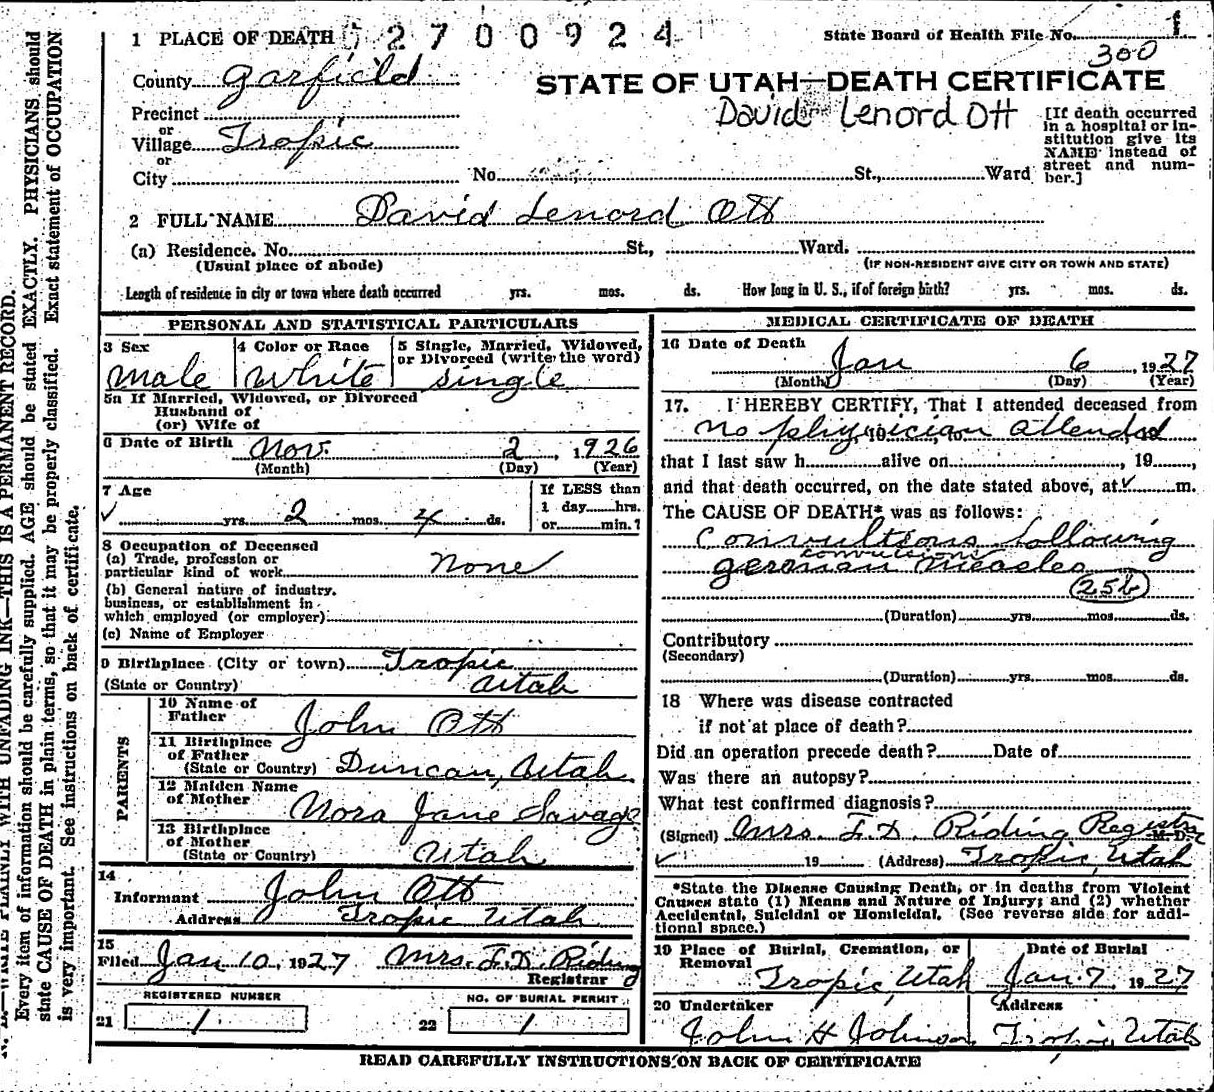 1 PLACE OF DEATH 2700924 State Board of Health File No. 1
300
County Garfield STATE OF UTAH—DEATH CERTIFICATE
Precinct David Lenord Ott
or
Village Tropic
or
City No. St., Ward
[If death occurred
in a hospital or in-
stitution give its
NAME instead of
street and num-
ber.]
2 FULL NAME David Lenord Ott
(a) Residence. No. St., Ward.
(Usual place of abode) (IF NON-RESIDENT GIVE CITY OR TOWN AND STATE)
Length of residence in city or town where death occurred yrs. mos. ds. How long in U. S., if of foreign birth? yrs. mos. ds.
PERSONAL AND STATISTICAL PARTICULARS
3 Sex
Male
4 Color or Race
White
5 Single, Married, Widowed,
or Divorced (write the word)
single
5a If Married, Widowed, or Divorced
Husband of
(or) Wife of
6 Date of Birth Nov. 2, 1926
(Month) (Day) (Year)
7 Age
yrs. 2 mos. 4 ds.
If LESS than
1 day hrs.
or min.?
8 Occupation of Deceased
(a) Trade, profession or
particular kind of work None
(b) General nature of industry,
business, or establishment in
which employed (or employer)
(c) Name of Employer
9 Birthplace (City or town) Tropic
(State or Country) Utah
PARENTS
10 Name of
Father John Ott
11 Birthplace
of Father
(State or Country) Duncan, Utah
12 Maiden Name
of Mother Nora Jane Savage
13 Birthplace
of Mother
(State or Country) Utah
14
Informant John Ott
Address Tropic Utah
15
Filed Jan 10, 1927 Mrs. F. D. Riding
Registrar
REGISTERED NUMBER
21 1
NO. OF BURIAL PERMIT
22 1
MEDICAL CERTIFICATE OF DEATH
16 Date of Death
Jan 6, 1927
(Month) (Day) (Year)
17. I HEREBY CERTIFY, That I attended deceased from
No physician attended
that I last saw h alive on , 19 ,
and that death occurred, on the date stated above, at m.
The CAUSE OF DEATH* was as follows:
Convultions following
convulsions
german measles
25b
(Duration) yrs. mos. ds.
Contributory
(Secondary)
(Duration) yrs. mos. ds.
18 Where was disease contracted
if not at place of death?
Did an operation precede death? Date of
Was there an autopsy?
What test confirmed diagnosis?
(Signed) Mrs. F. D. Riding Registrar M. D.
19 (Address) Tropic, Utah
*State the Disease Causing Death, or in deaths from Violent
Causes state (1) Means and Nature of Injury; and (2) whether
Accidental, Suicidal or Homicidal. (See reverse side for addi-
tional space.)
19 Place of Burial, Cremation, or
Removal
Tropic, Utah
Date of Burial
Jan 7, 1927
20 Undertaker
John H Johnson
Address
Tropic, Utah
READ CAREFULLY INSTRUCTIONS ON BACK OF CERTIFICATE
PLAINLY WITH UNFADING INK—THIS IS A PERMANENT RECORD.
Every item of information should be carefully supplied. AGE should be stated EXACTLY. PHYSICIANS should
state CAUSE OF DEATH in plain terms, so that it may be properly classified. Exact statement of OCCUPATION
is very important. See instructions on back of certificate.